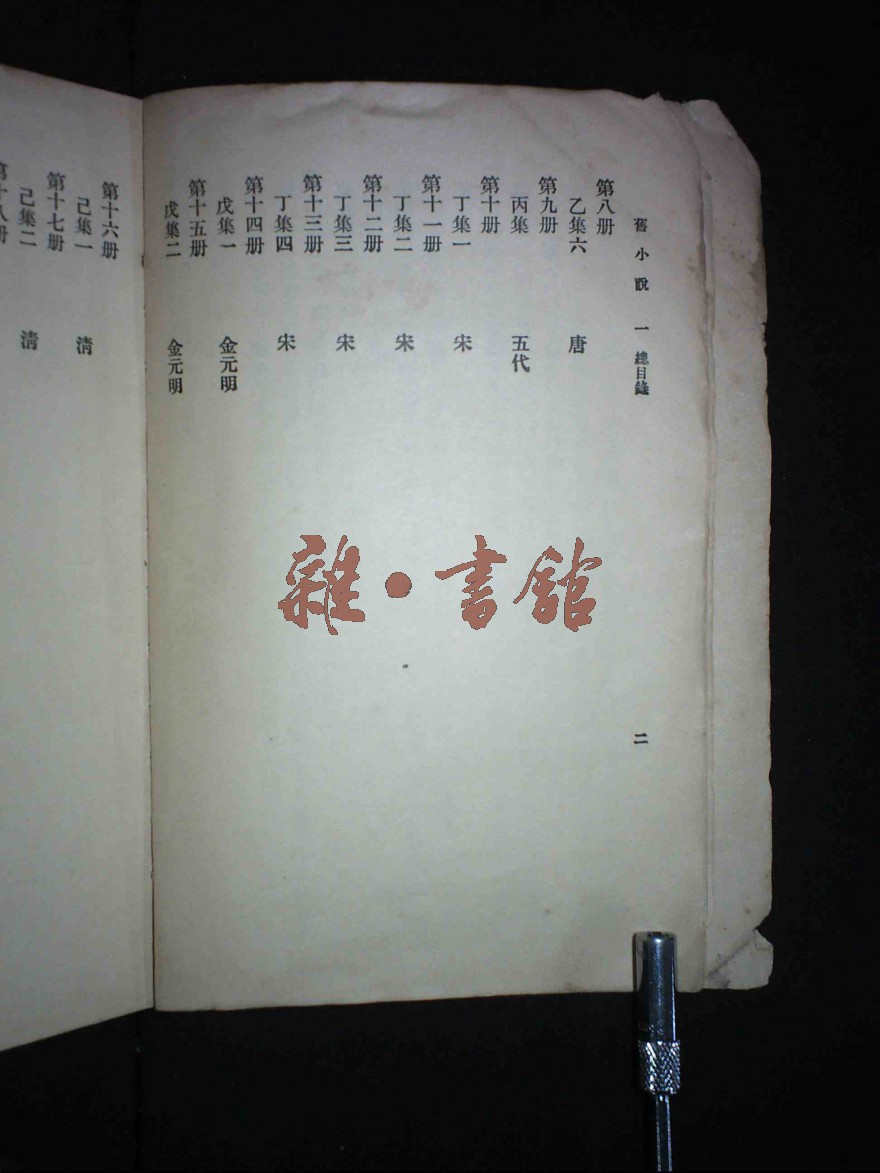 舊小說 一 總目錄 二
第八册
乙集六 唐
第九册
丙集 五代
第十册
丁集一 宋
第十一册
丁集二 宋
第十二册
丁集三 宋
第十三册
丁集四 宋
第十四册
戊集一 金元明
第十五册
戊集二 金元明
第十六册
己集一 淸
第十七册
己集二 淸
第十八册
雜·書館